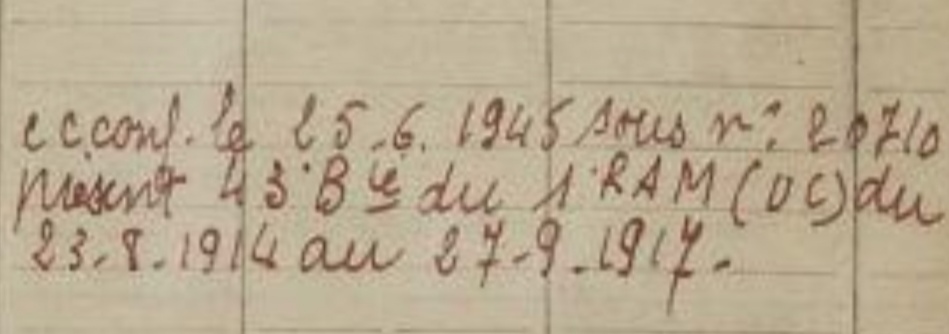 c c conf. le 25.6.1945 sous n° 20710
présent 43°Bie du 1°RAM (UC) du
23.8.1914 au 27-9-1917.